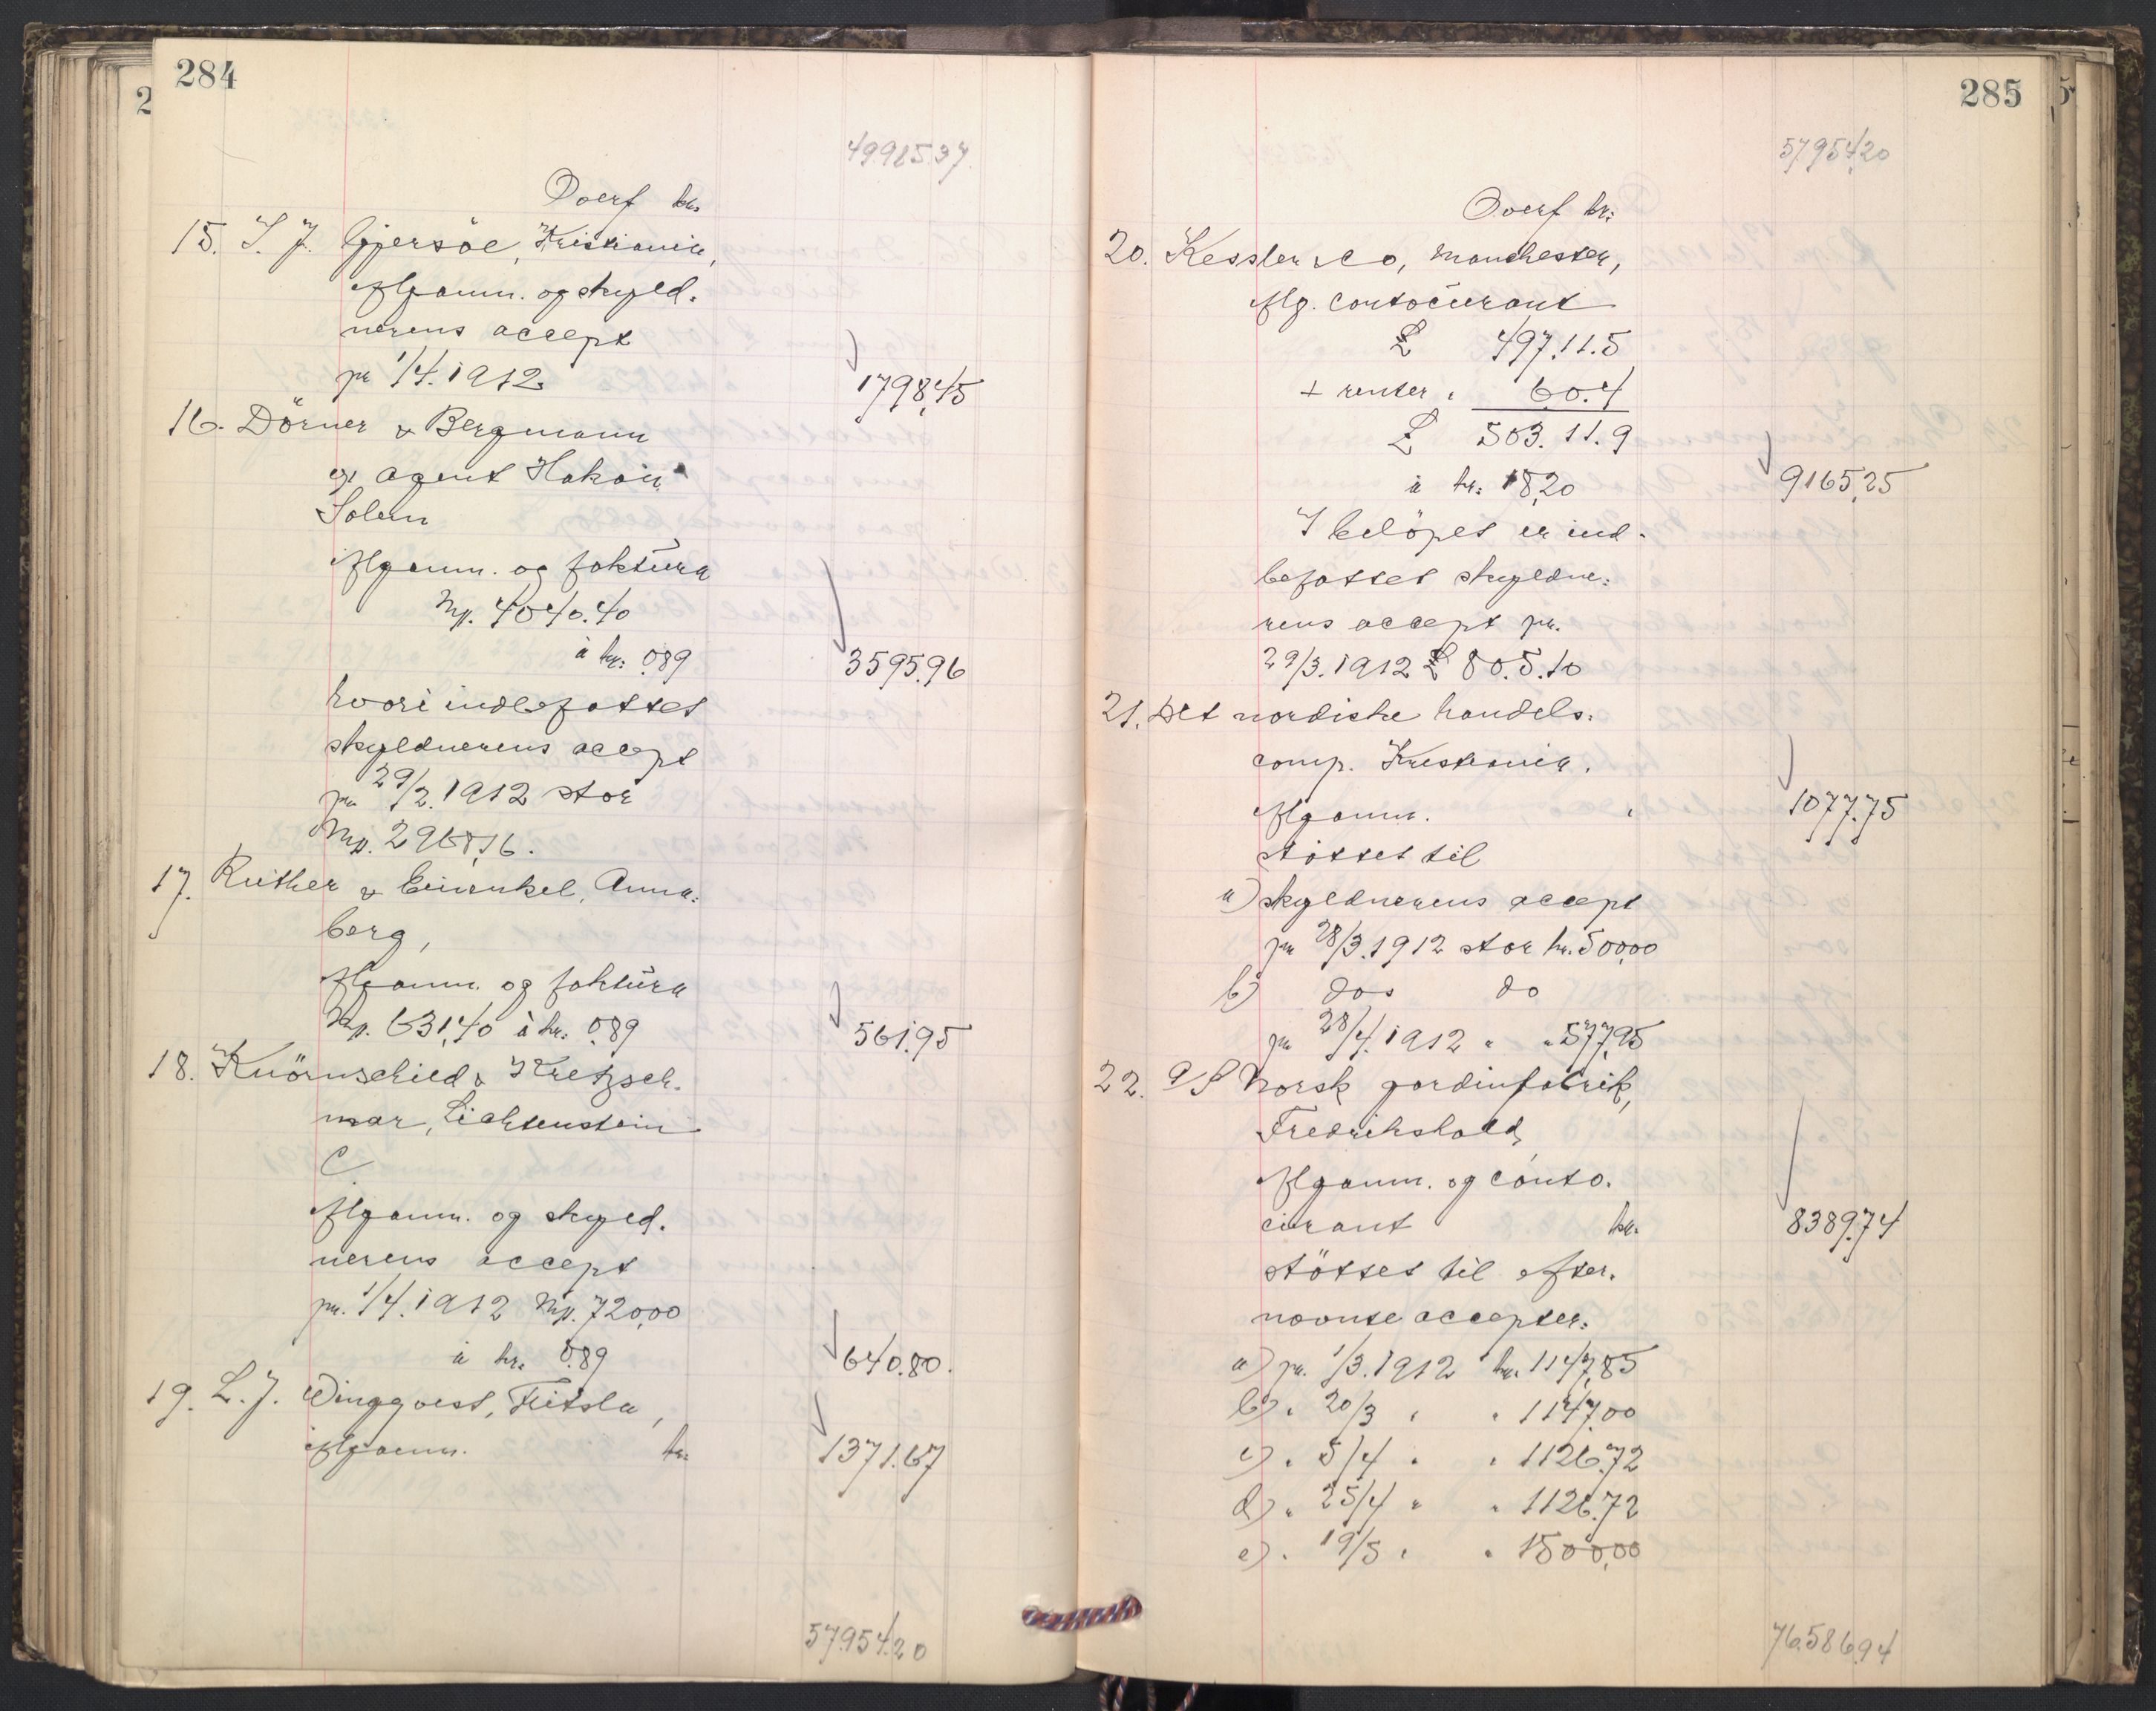 284
49985.37
Overf kr.
15. S. J. Gjersöe, Kristiania,
Afganm. og skyld-
nerens accept
pr 1/4. 1912.
1798,45
16. Dörner & Bergmann
v/ agent Hakon
Solem
Afganm. og faktura
Mk. 4040.40
à kr: 0.89
3595.96
hvori indbefattet
skyldnerens accept
pr 29/2. 1912 stor
Mk. 2968,16.
17. Rüther & Einenkel, Anna-
berg,
Afganm. og faktura
Mk. 631,40 à kr: 0.89
561.95
18. Knörnschild & Kretzsch-
mar, Lichtenstein
C.
Afganm. og skyld-
nerens accept
pr. 1/4. 1912 Mk. 720,00
à kr. 0.89
640.80.
19. L. J. Wingqvist, Fritsla,
Afganm. kr.
1371.67
57954.20
285
57954,20
Overf kr:
20. Kessler & Co, Manchester,
Afg. contocurant
£ 497.11.5
+ renter " 6.0.4
£ 503.11.9
à kr: 18,20
9165,25
I belöpet er ind-
befattet skyldne-
rens accept pr.
29/3. 1912 £ 80.5.10
21. Det nordiske handels-
comp. Kristiania.
Afganm. "
1077.75
stöttet til
a) skyldnerens accept
pr 28/3. 1912 stor kr. 500,00
b) dos do
pr 28/4. 1912 " " 577,95
22. A/S Norsk gardinfabrik,
Fredrikshald,
Afganm. og conto-
curant kr.
8389.74
stöttet til efter-
nævnte accepter:
a) pr. 1/3. 1912 kr. 1147,85
b) " 20/3 " " 1147,00
c) " 5/4 " " 1126.72
d) " 25/4 " " 1126.72
e) " 19/5 " " 1500,00
76.586.94